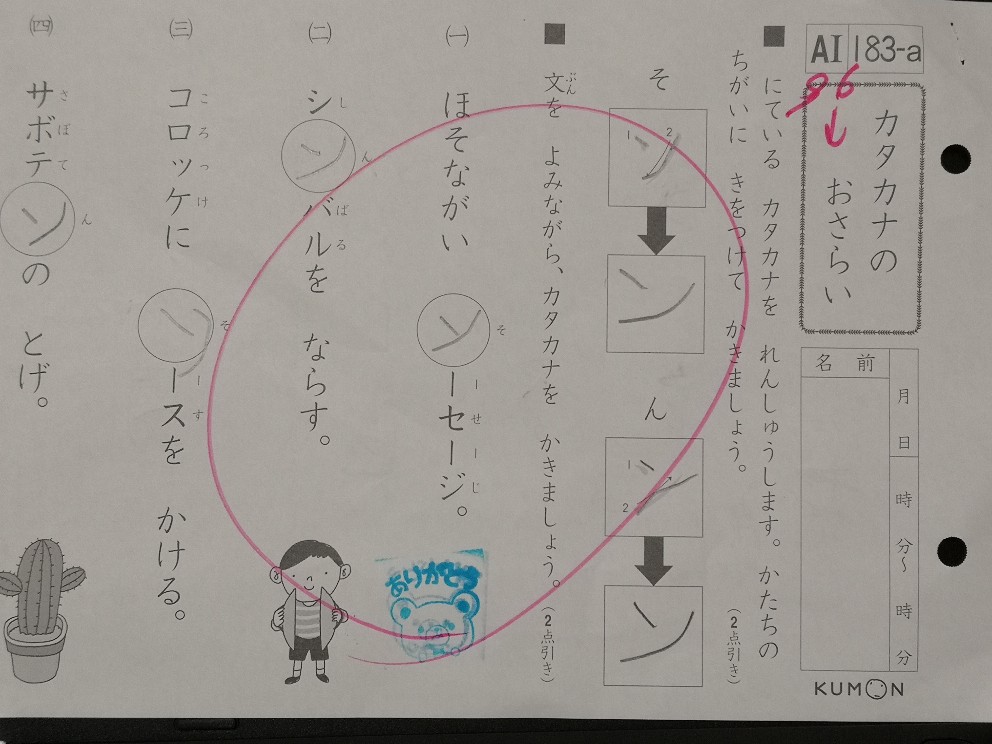 AI 183-a
96→
カタカナの
おさらい
月 日 時 分〜 時 分
名前
KUMON
■ にている カタカナを れんしゅうします。かたちの
ちがいに きをつけて かきましょう。
(2点引き)
そ
1 2
ソ
ソ
ん
1 2
ン
ン
■ 文を よみながら、カタカナを かきましょう。
ぶん
(2点引き)
㈠ ほそながい ソーセージ。
そーせーじ
㈡ シンバルを ならす。
しんばる
㈢ コロッケに ソースを かける。
ころっけ そーす
㈣ サボテンの とげ。
さぼてん
ありがとう